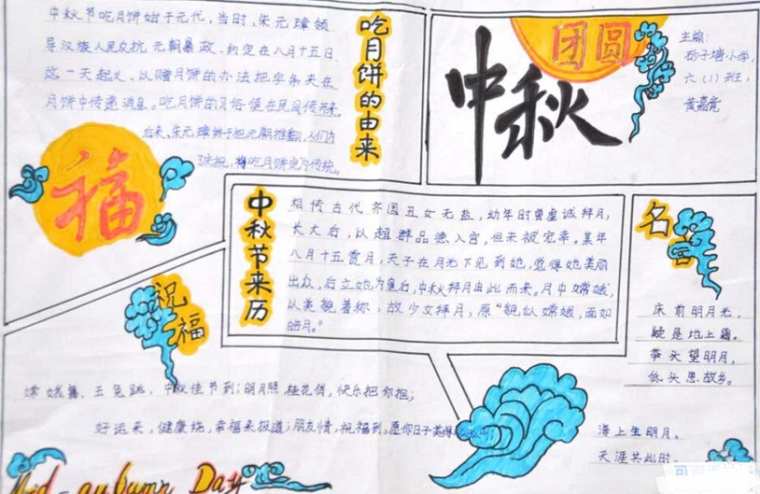 吃月饼的由来
中秋节吃月饼始于元代,当时,朱元璋领
导汉族人民反抗元朝暴政,约定在八月十五日
这一天起义,以赠月饼的办法把字条夹在
月饼中传递消息。吃月饼的习俗便在民间传开来。
后来,朱元璋
吃月饼
传统。
福
团圆
中秋
主编:
小学,
六(1)班:
黄嘉
中秋节来历
相传古代齐国丑女无盐,幼年时曾虔诚拜月,
长大后,以超群品德入宫,但未被宠幸。某年
八月十五赏月,天子在月光下见到她,觉得她美丽
出众,后立她为皇后,中秋拜月由此而来。月中嫦娥,
以美貌著称,故少女拜月,愿“貌似嫦娥,面如
皓月。”
名
床前明月光,
疑是地上霜。
举头望明月,
低头思故乡。
海上生明月,
天涯共此时。
祝福
嫦娥舞,玉兔跳,中秋佳节到;明月照,桂花俏,快乐把你抱;
好运来,健康绕,幸福来报道;朋友情,祝福到,愿你日子美
Mid-autumn Day